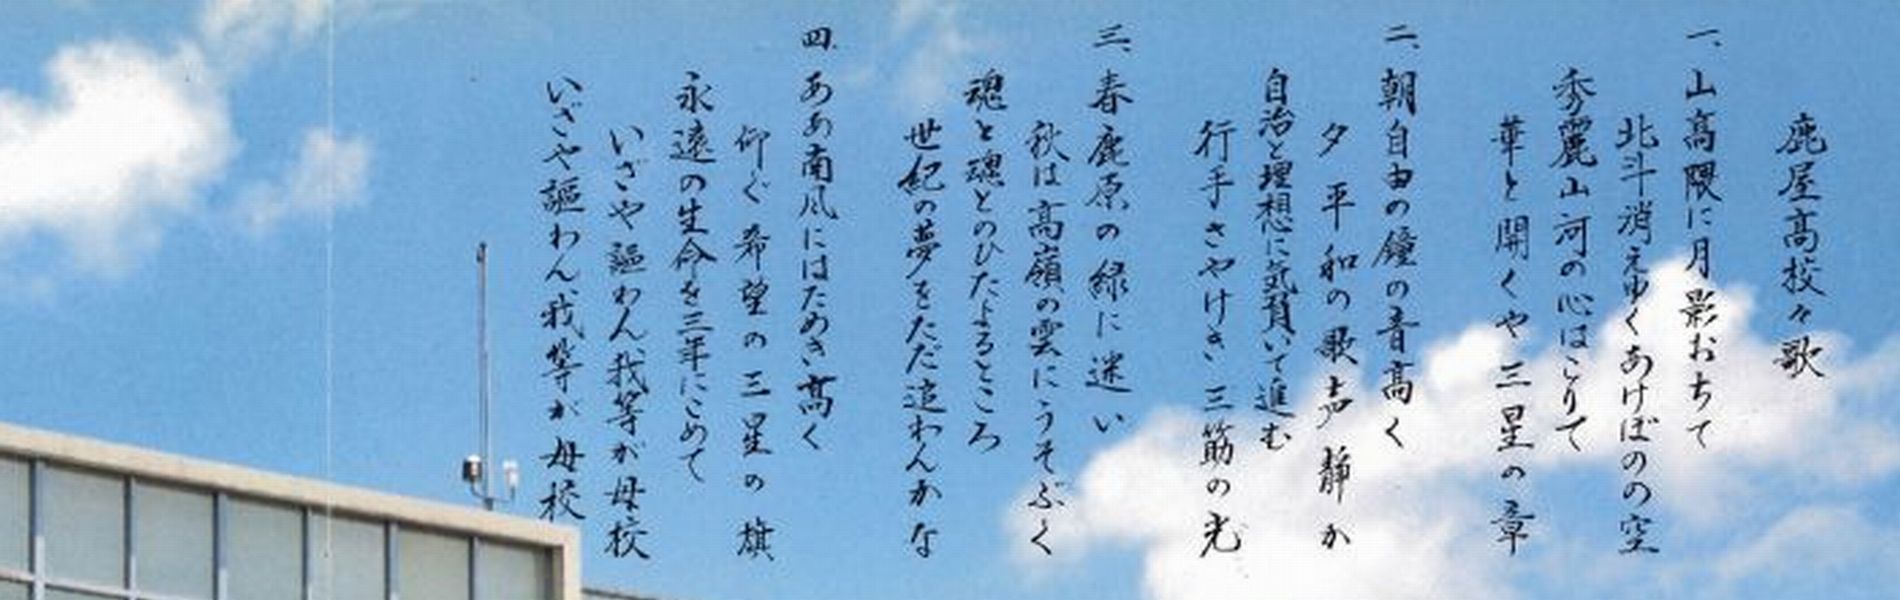 鹿屋高校々歌
一、山高隈に月影おちて
北斗消えゆくあけぼのの空
秀麗山河の心はこりて
華と開くや三星の章
二、朝自由の鐘の音高く
夕平和の歌声静か
自治と理想に気負いて進む
行手さやけき三筋の光
三、春鹿原の緑に迷い
秋は高嶺の雲にうそぶく
魂と魂とのひたよるところ
世紀の夢をただ追わんかな
四、ああ南風にはためき高く
仰ぐ希望の三星の旗
永遠の生命を三年にこめて
いざや謳わん、我等が母校
いざや謳わん、我等が母校